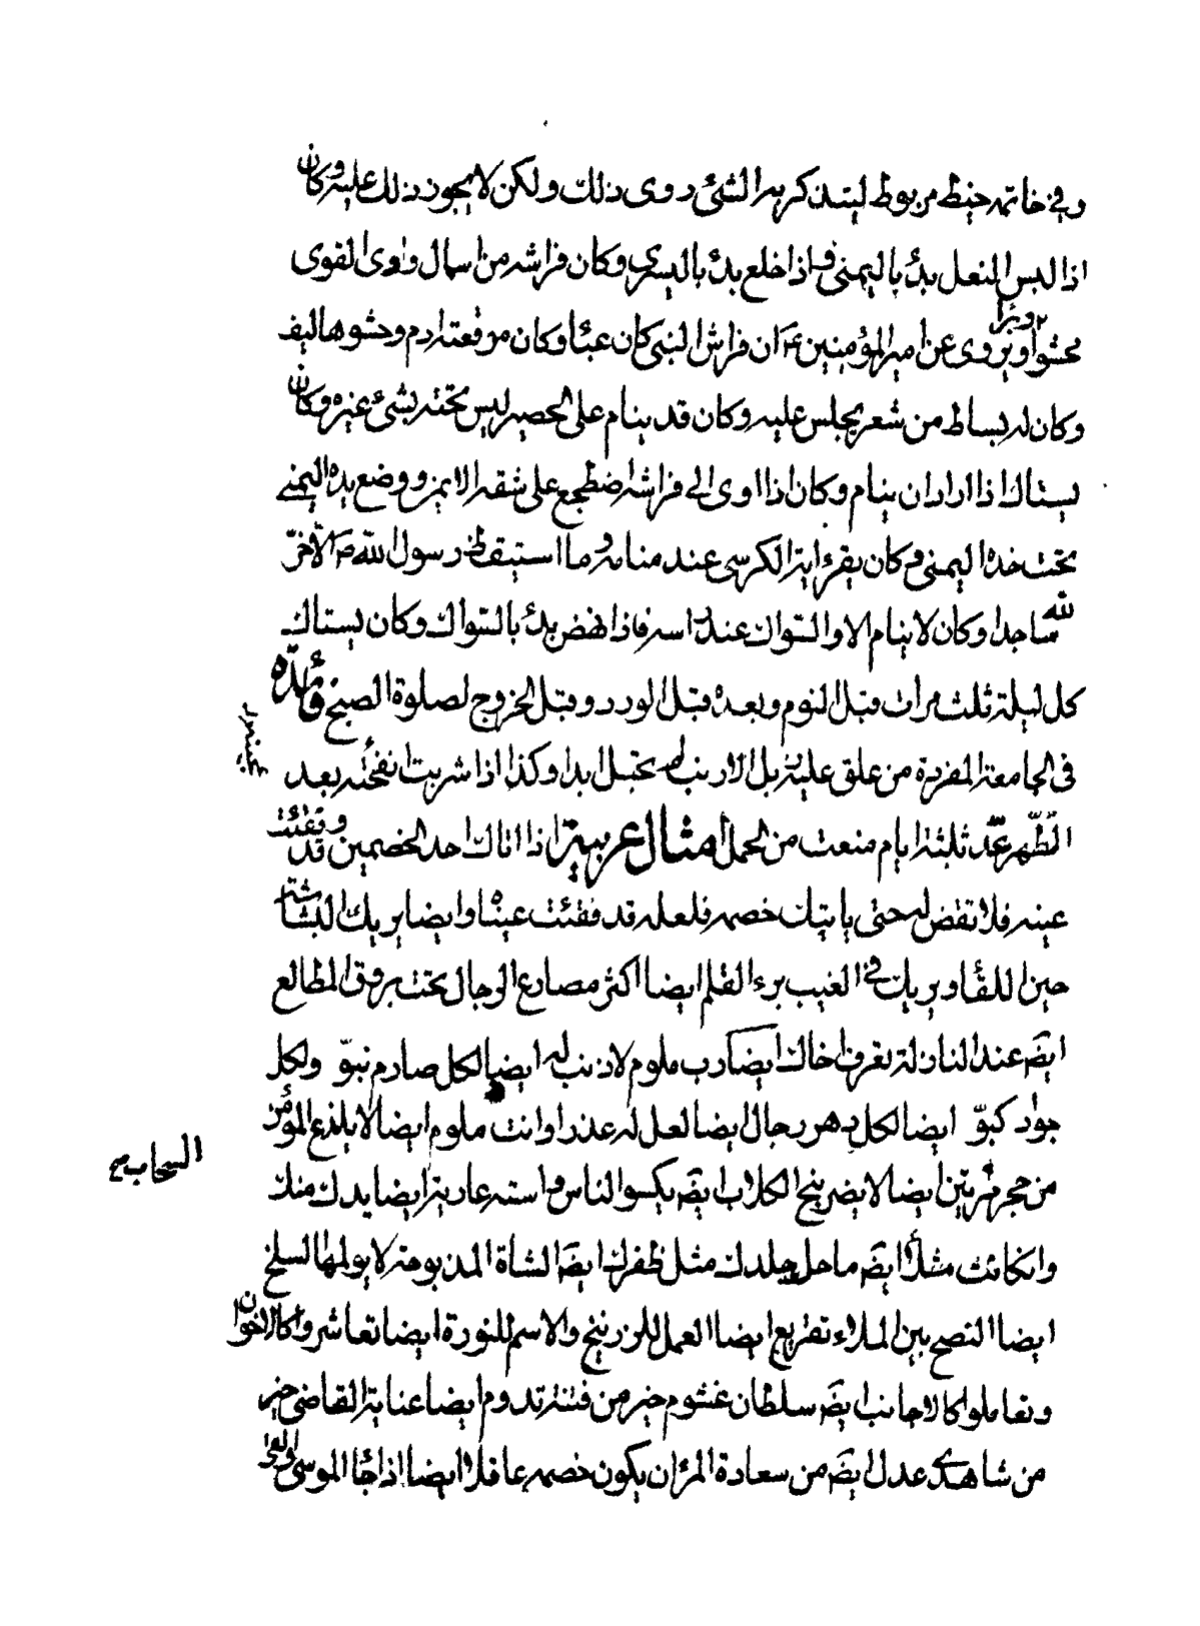 وفي خاتمه خيط مربوط ليتذكر به الشئ روى ذلك ولكن لا يجوز ذلك عليه وكان
اذا لبس النعل بدئ باليمنى واذا خلع بدئ باليسرى وكان فراشه من اسمال واوى القوى
محشوا وبرا ويروى عن امير المؤمنين ع ان فراش النبى كان عبئا وكان مرفعته ادم وحشوها ليف
وكان له بساط من شعر يجلس عليه وكان قد ينام على الحصير ليس تحته بشئ غيره وكان
يستاك اذا اراد ان ينام وكان اذا اوى الى فراشه اضطجع على شقه الايمن ووضع يده اليمنى
تحت خده اليمنى وكان يقرء اية الكرسى عند منامه وما استيقظ رسول الله ص الا خر
لله ساجدا وكان لا ينام الا والسواك عند راسه فاذا نهض بدئ بالسواك وكان يستاك
كل ليلة ثلث مرات قبل النوم وبعده قبل الورد وقبل الخروج لصلوة الصبح فائدة
فى الجامعة المفردة من علق عليه زبل الارنب لم تحبل ابدا وكذا اذا شربت انفحته بعد
الطهر ثلثة ايام منعت من الحمل امثال عربية اذا اتاك احد الخصمين وقد فقئت
عينه فلا تقض له حتى ياتيك خصمه فلعله قد فقئت عيناه وايضا يريك البشاشة
حين اللقاء ويريك في الغيب برء القلم ايضا اكثر مصارع الرجال تحت بروق المطامع
ايضَ عند النازلة تعرف اخاك ايضَ رب ملوم لا ذنب له ايضا لكل صارم نبوّ ولكل
جواد كبوّ ايضا لكل دهر رجال ايضا لعل له عذرا وانت ملوم ايضا لا يلدغ المؤمن
من حجر مرتين ايضا لا يضر نبح الكلاب ايضَ يكسو الناس واسته عارية ايضا يدك منك
السحاب صح
وان كانت شلا ايضَ ما حك جلدك مثل ظفرك ايضَ الشاة المذبوحة لا يولمها السلخ
ايضا النصح بين الملاء تقريع ايضا العمل للزرنيخ والاسم للنورة ايضا تعاشروا كالاخوان
وتعاملوا كالاجانب ايضَ سلطان غشوم خير من فتنة تدوم ايضا عناية القاضى خير
من شاهدى عدل ايضَ من سعادة المرء ان يكون خصمه عاقلا ايضا اذا جاء الموسى والقى